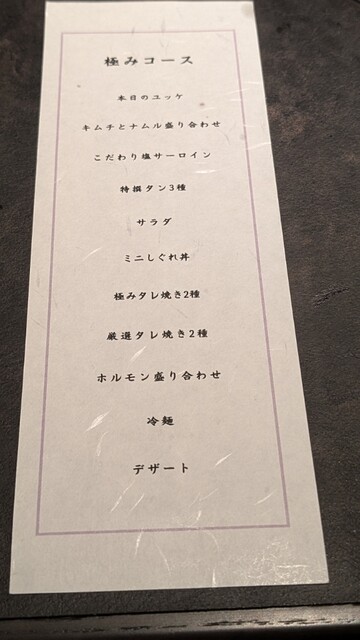 極みコース
本日のユッケ
キムチとナムル盛り合わせ
こだわり塩サーロイン
特撰タン3種
サラダ
ミニしぐれ丼
極みタレ焼き2種
厳選タレ焼き2種
ホルモン盛り合わせ
冷麺
デザート